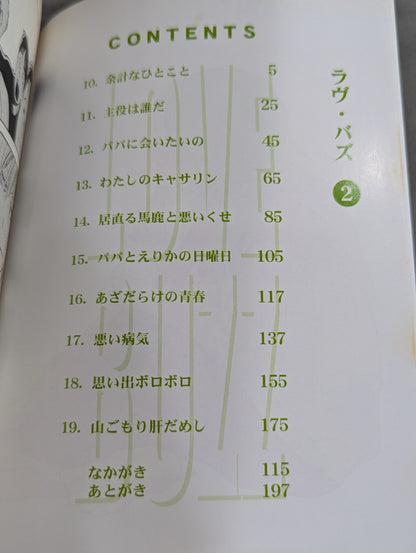 CONTENTS
ラヴ・バズ 2
10. 余計なひとこと 5
11. 主役は誰だ 25
12. パパに会いたいの 45
13. わたしのキャサリン 65
14. 居直る馬鹿と悪いくせ 85
15. パパとえりかの日曜日 105
16. あざだらけの青春 117
17. 悪い病気 137
18. 思い出ボロボロ 155
19. 山ごもり肝だめし 175
なかがき 115
あとがき 197